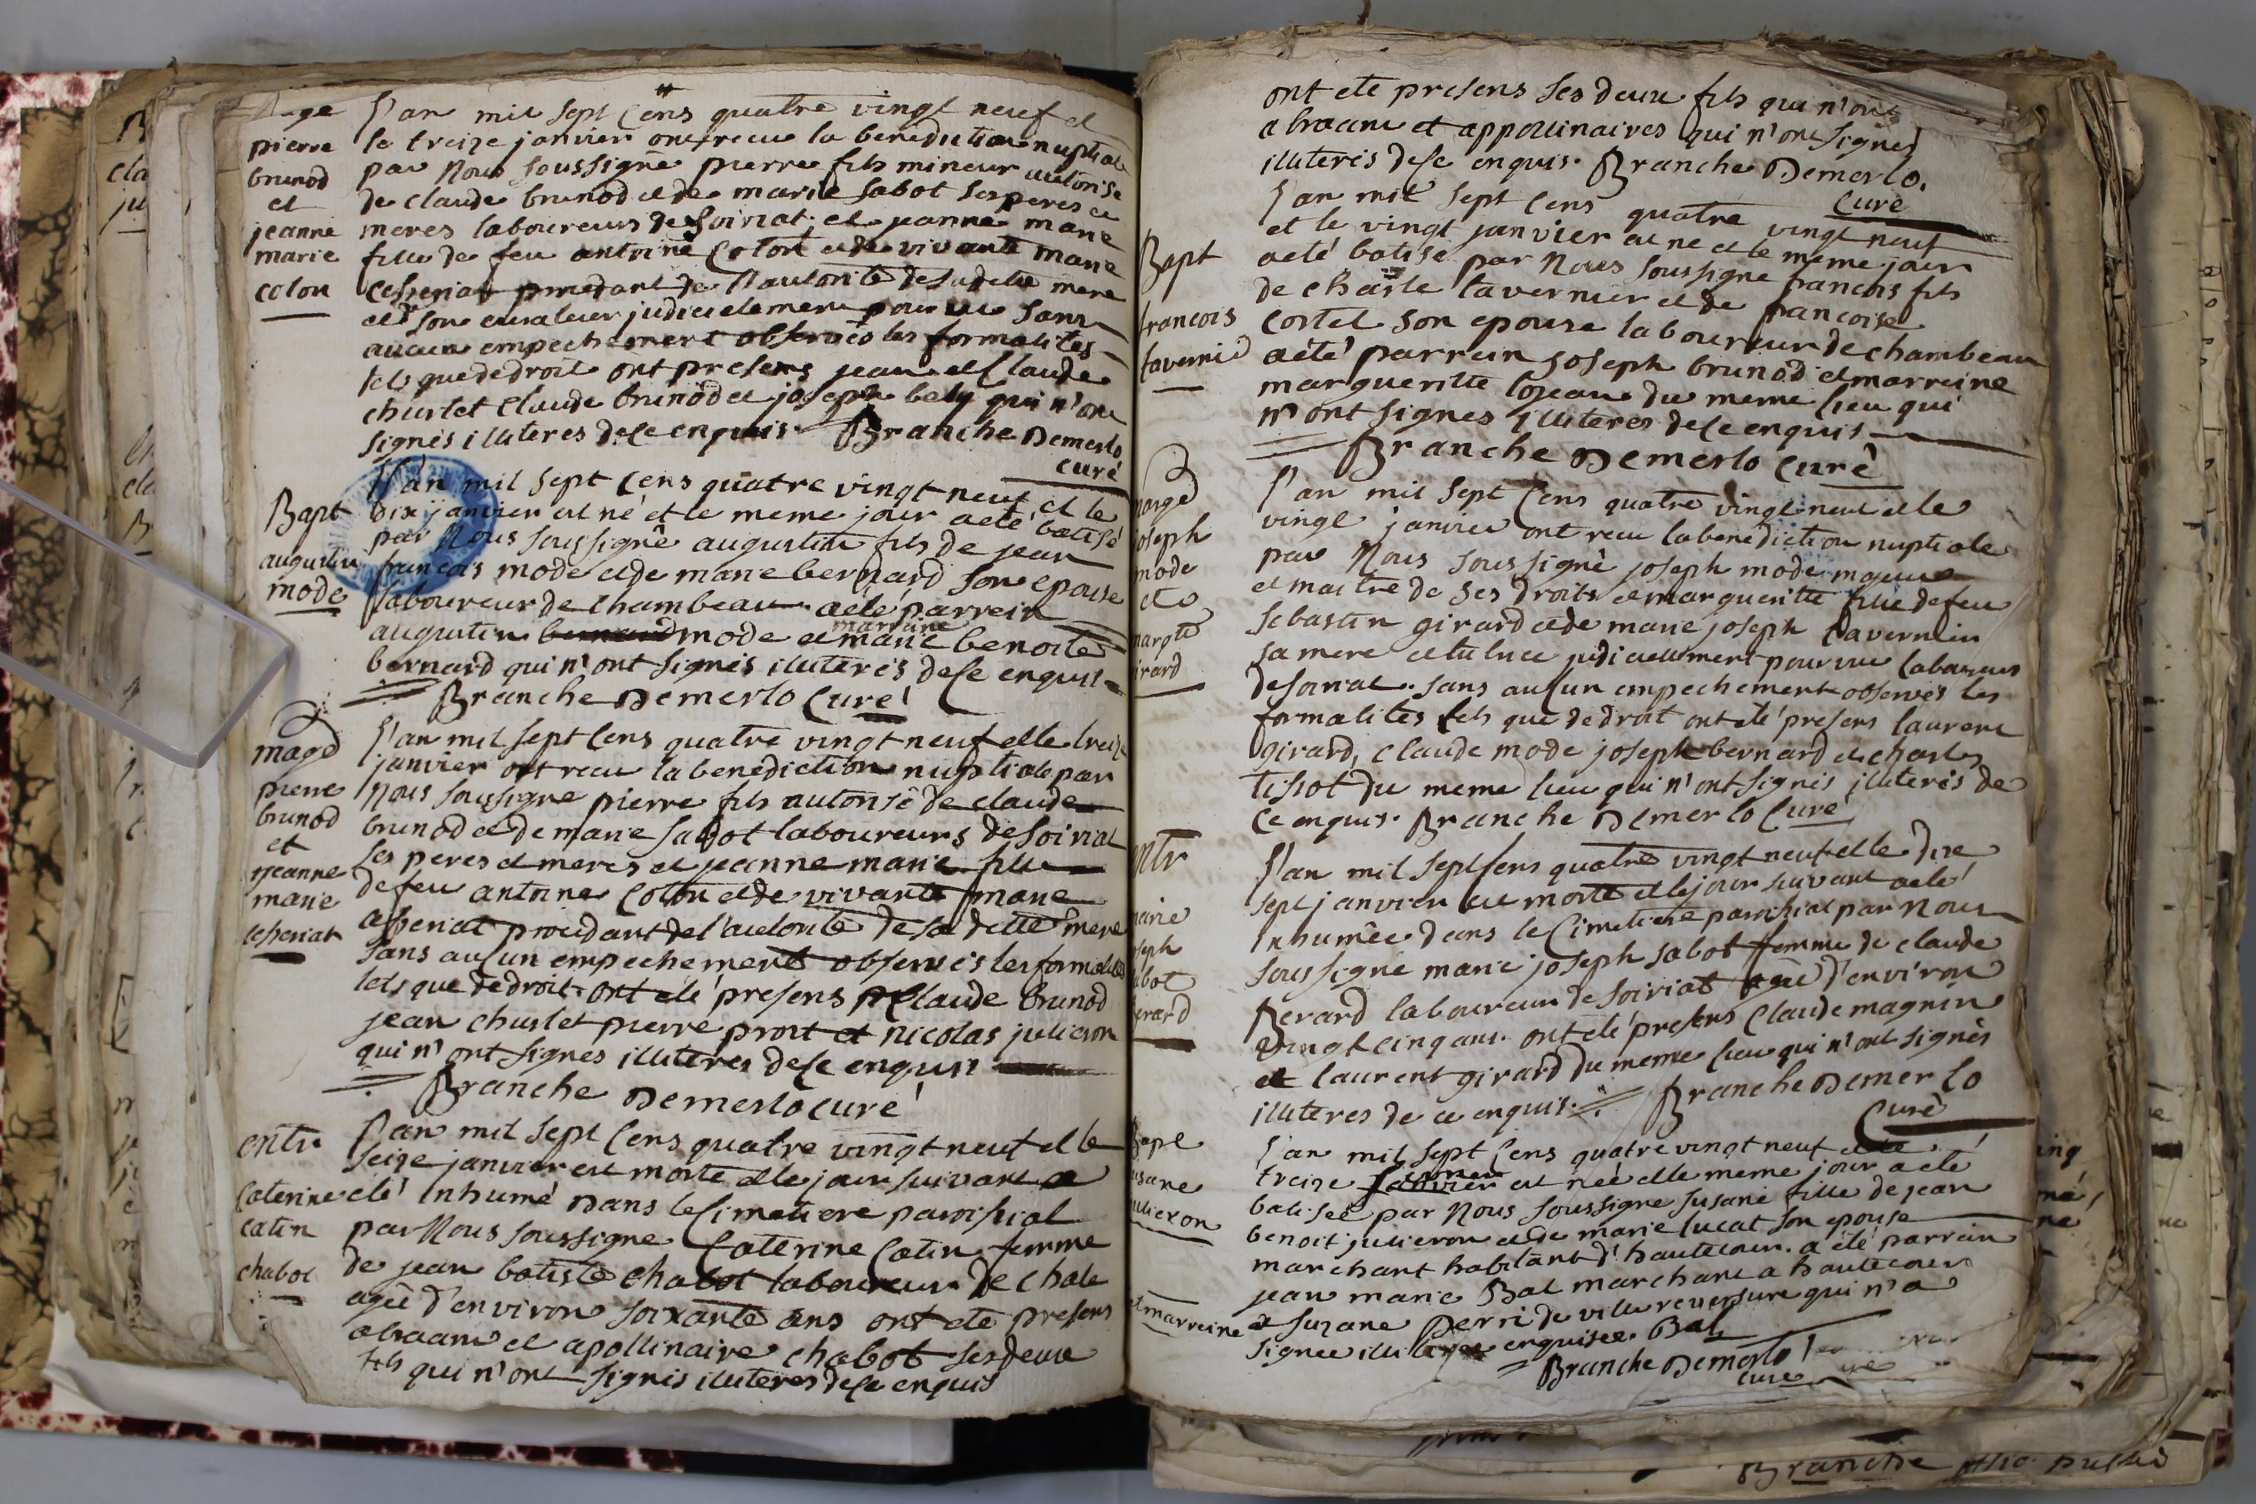 pierre
brunod
et
jeanne
marie
colon
L'an mil sept Cens quatre vingt neuf et
le treize janvier ont recu la benediction nuptiale
par Nous soussigné pierre fils mineur autorise
de claude brunod et de marie sabot ses peres et
meres laboureurs de soiriat et jeanne marie
fille de feu antoine Colon et de vivante marie
procedant de l'autorité de sa dette mere
et de son curateur judiciellement pourvue sans
aucun empechement observés les formalites
tels que de droit ont presens jean et Claude
churlet Claude brunod et joseph bely qui n'ont
signés illiteres de ce enquis Branche Demerlo
curé
Bapt
augustin
mode
L'an mil sept Cens quatre vingt neuf et le
dix janvier est né et le meme jour a eté batisé
par Nous soussigné augustin fils de jean
francois mode et de marie bernard son epouse
laboureur de chambeau a eté parrein
augustin mode et marreine marie benoite
bernard qui n'ont signés illiteres de ce enquis
Branche Demerlo Curé
mage
pierre
brunod
et
jeanne
marie
L'an mil sept Cens quatre vingt neuf et le treize
janvier ont recu la benediction nuptiale par
Nous soussigné pierre fils autorisé de claude
brunod et de marie sabot laboureurs de soiriat
ses peres et meres et jeanne marie fille
de feu antoine Colon et de vivante marie
procedant de l'autorité de sa dette mere
sans aucun empechement observés les formalités
tels que de droit. ont eté presens Claude brunod
jean churlet pierre prost et nicolas julieron
qui n'ont signes illiteres de ce enquis
Branche Demerlo curé
entr
Caterine
catin
chabot
L'an mil sept Cens quatre vingt neuf et le
seize janvier est morte et le jour suivant a
eté Inhumé Dans le Cimetiere paroissial
par Nous soussigné Caterine Catin femme
de jean batiste chabot laboureur de chale
agée d'environ soixante ans ont eté presens
abraam et apollinaire chabot ses deux
fils qui n'ont signés illiteres de ce enquis
ont eté presens ses deux fils qui n'ont
abraam et appollinaires qui n'ont signes
illiterés de ce enquis. Branche Demerlo.
Curé
Bapt
francois
L'an mil sept Cens quatre vingt neuf
et le vingt janvier est né et le meme jour
a eté batisé par Nous soussigné francois fils
de charle tavernier et de francoise
costel son epouse laboureur de chambeau
a eté parrein joseph brunod et marreine
marguerite du meme lieu qui
n'ont signes Illiteres de ce enquis
Branche Demerlo Curé
joseph
mode
L'an mil sept Cens quatre vingt neuf et le
vingt janvier ont recu la benediction nuptiale
par Nous soussigné joseph mode majeur
et maitre de ses droits et marguerite fille de feu
sebastin girard et de marie joseph tavernier
sa mere et tutrice judiciellement pourvue laboureurs
de soiriat. sans aucun empechement observés les
formalites tels que de droit ont eté presens laurent
girard, claude mode joseph bernard et charles
tissot du meme lieu qui n'ont signés illiterés de
ce enquis. Branche Demerlo Curé
L'an mil sept Cens quatre vingt neuf et le dix
sept janvier est morte et le jour suivant a eté
Inhumée dans le Cimetiere paroissial par Nous
soussigné marie joseph sabot femme de claude
Berard laboureur de soiriat agée d'environ
vingt cinq ans. ont eté presens Claude magnin
et laurent girard du meme lieu qui n'ont signés
illiteres de ce enquis. Branche Demerlo
Curé
L'an mil sept Cens quatre vingt neuf et le
treize janvier est née et le meme jour a eté
batisée par Nous soussigné susane fille de jean
benoit julieron et de marie lucat son epouse
marchant habitant d'hautecour. a été parrein
jean marie Bal marchant a hautecour
et marreine
et suzane perri de ville reversure qui n'a
signee illiteree enquisee. Bal
Branche Demerlo
curé